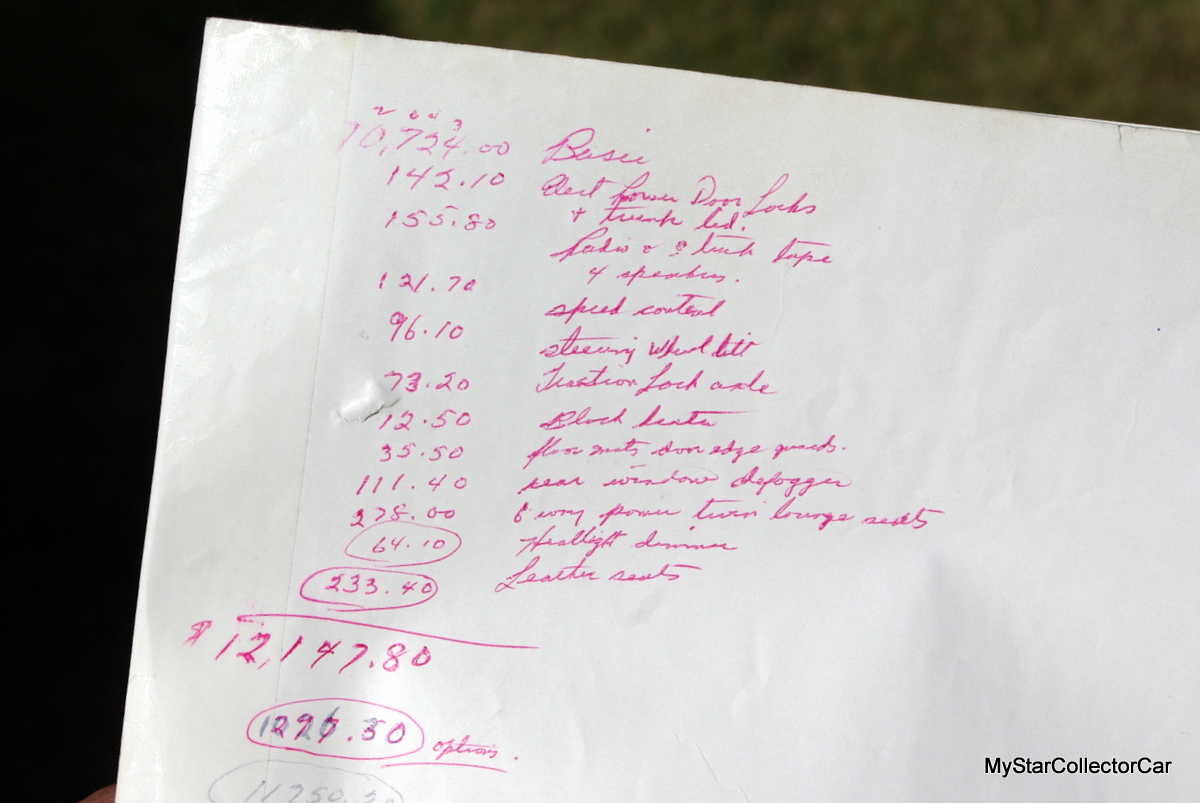 2 6 4 3
10,724.00 Basic
142.10 Elect Power Door Locks
155.80 + trunk lid.
Radio & 8 track tape
121.70 4 speakers.
96.10 speed control
steering wheel tilt
73.20 Traction Lock axle
12.50 Block heater
35.50 floor mats door edge guards.
111.40 rear window defogger
278.00 6 way power twin lounge seats
64.10 Headlight dimmer
233.40 Leather seats
$12,147.80
options.
MyStarCollectorCar